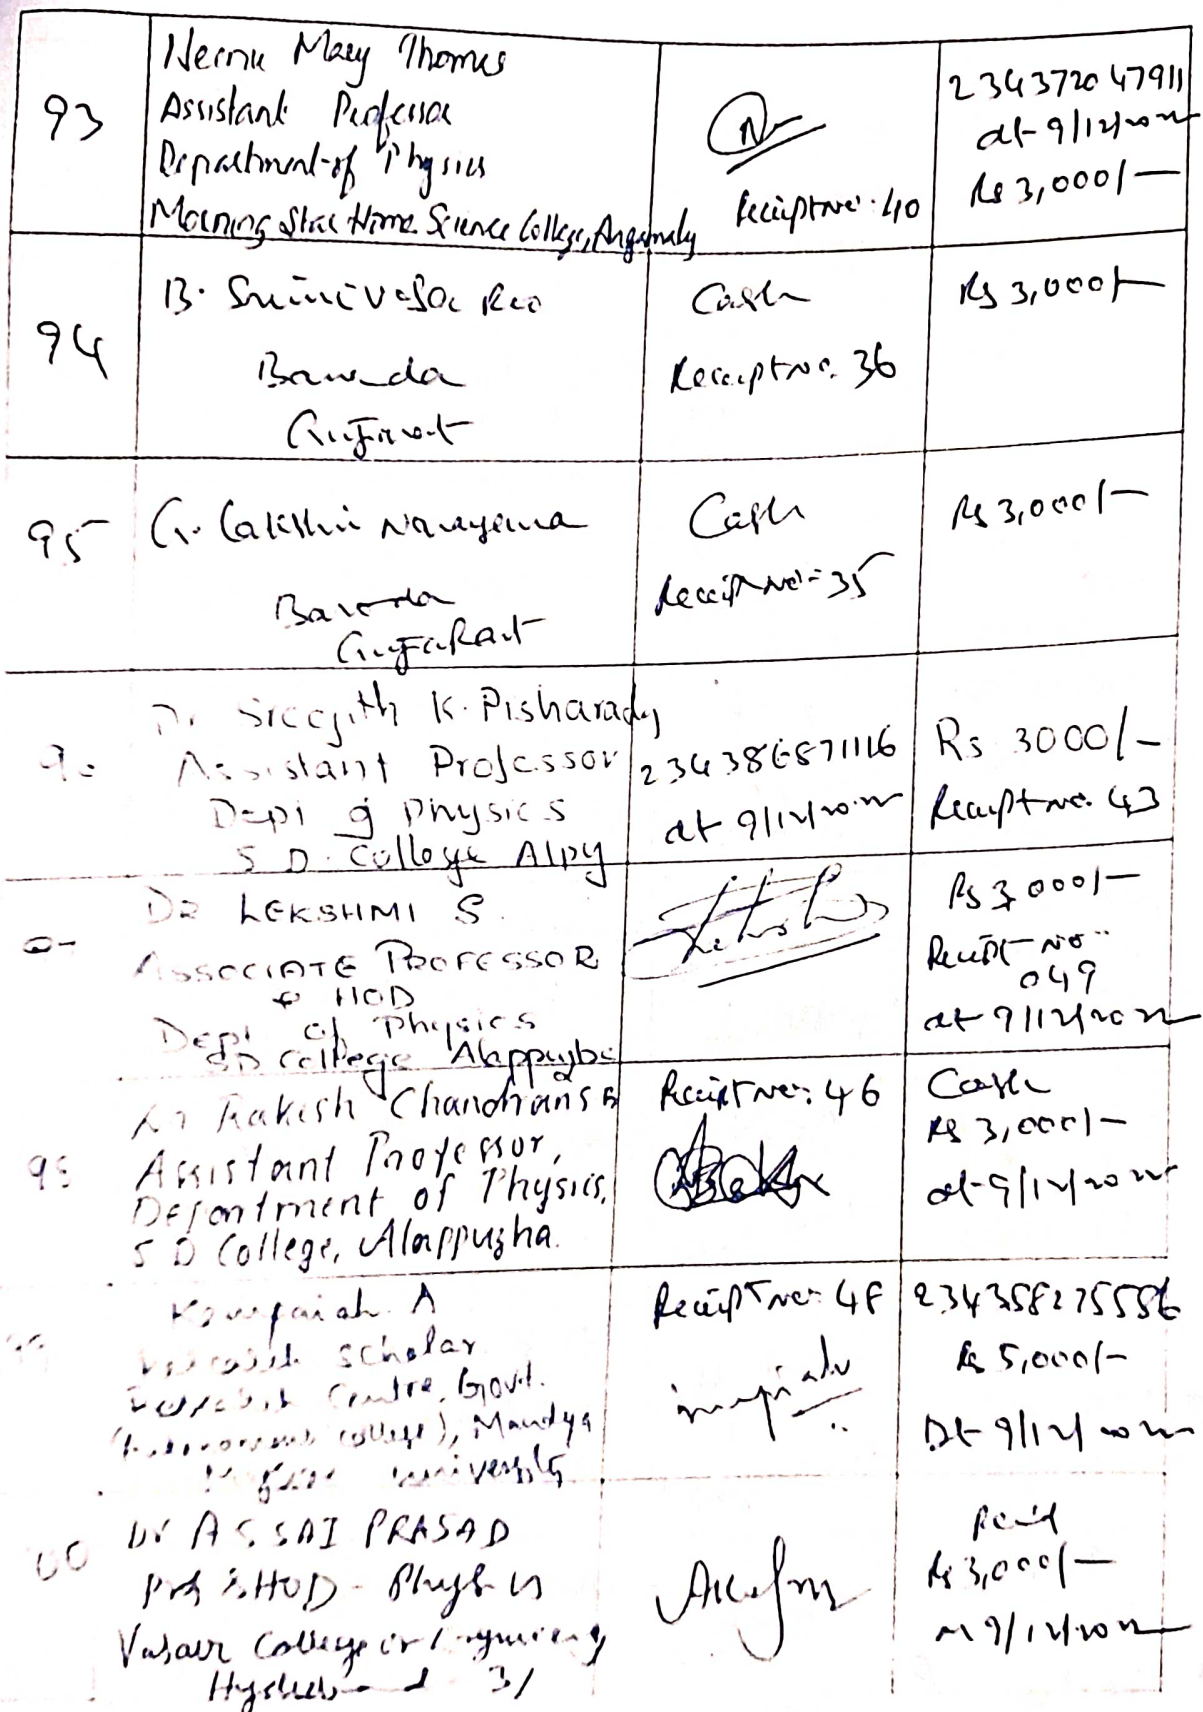 93
Mary Thomas
Assistant Professor
Department of Physics
Morning Star Home Science College, Angamaly
Receipt no: 40
234372047911
dt 9/12/2022
Rs 3,000/-
94
B. Srinivasa Rao
Baroda
Gujarat
Cash
Receipt no. 36
Rs 3,000/-
95
G. Lakshmi Narayana
Baroda
GujaRat
Cash
Receipt no:- 35
Rs 3,000/-
Dr Sreejith K. Pisharady
Assistant Professor
Dept of Physics
S D. College Alpy
dt 9/12/2022
Rs 3000/-
Receipt no. 43
Dr LEKSHMI S.
ASSOCIATE PROFESSOR
& HOD
Dept of Physics
SD College Alappuzha
Rs 3,000/-
Receipt no:
049
dt 9/12/2022
98
Dr Rakesh Chandran S B
Assistant Professor,
Department of Physics,
S D College, Alappuzha.
Receipt no: 46
Cash
Rs 3,000/-
dt 9/12/2022
A
Scholar
Centre, Govt.
(Autonomous College), Mandya
University
Receipt no: 48
234358275556
Rs 5,000/-
Dt 9/12/2022
Dr A S SAI PRASAD
Prof & HOD - Physics
Vasavi College of Engineering
Hyderabad 31
Paid
Rs 3,000/-
9/12/2022